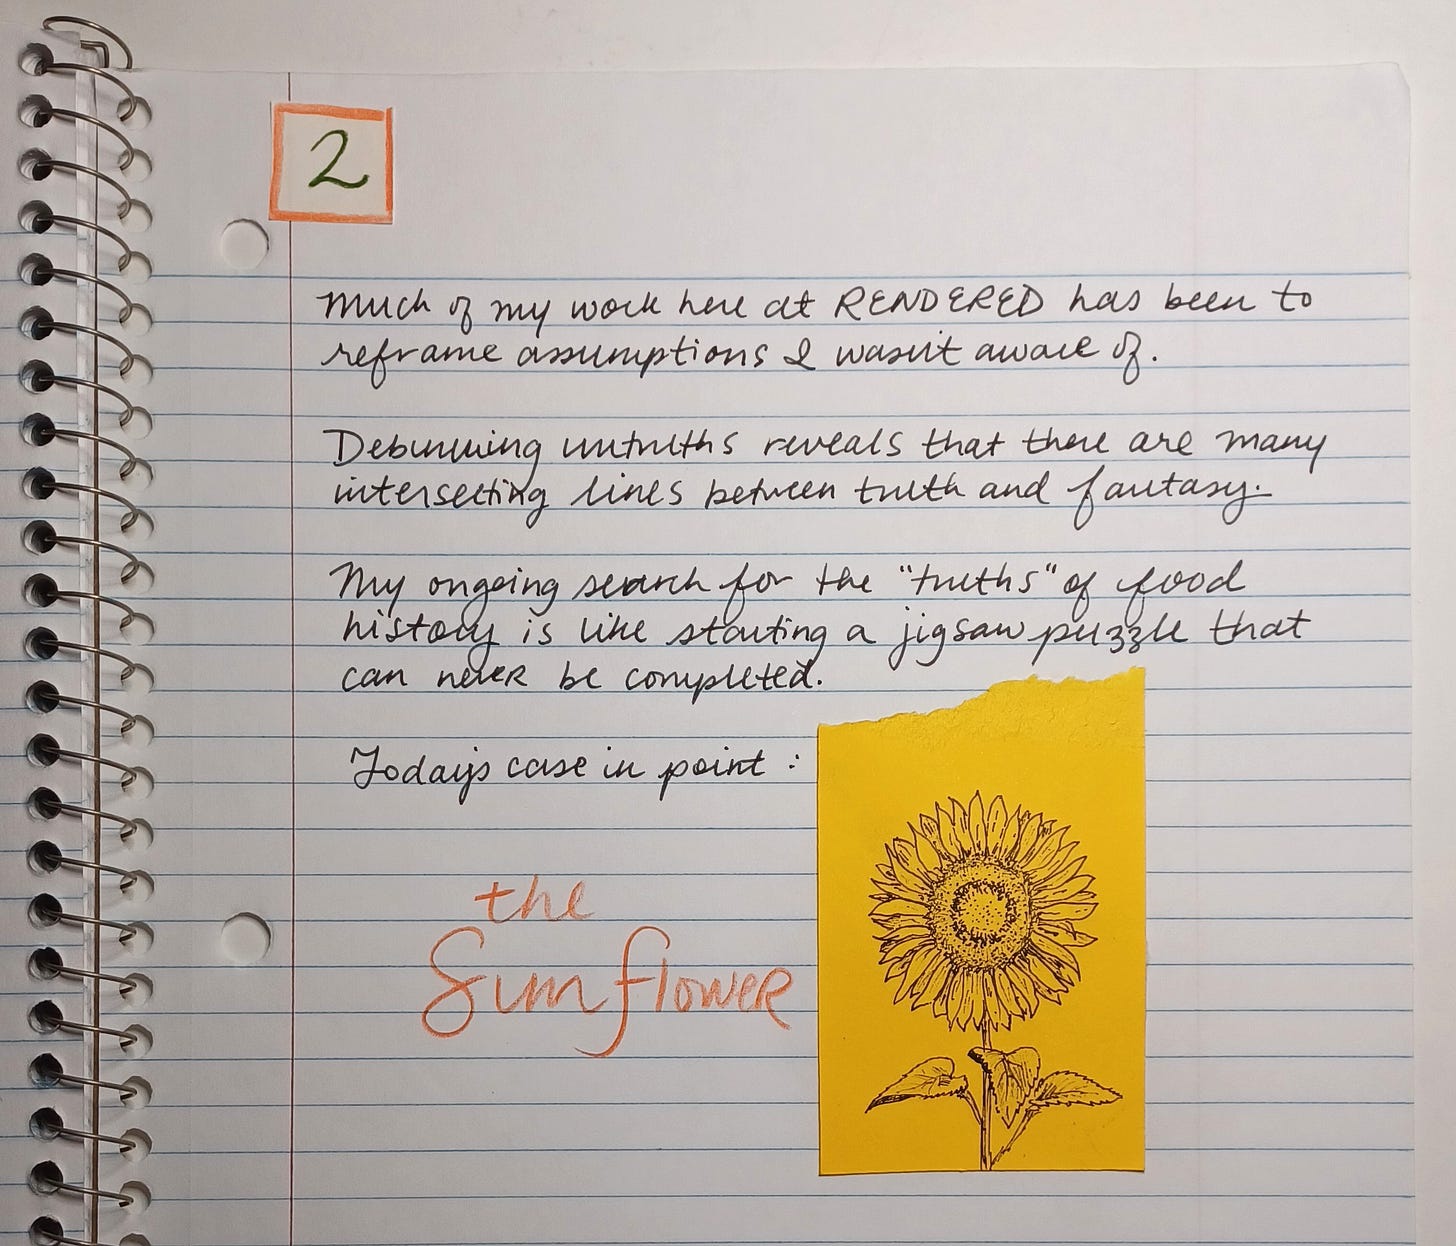 2
Much of my work here at RENDERED has been to
reframe assumptions I wasn't aware of.
Debunking untruths reveals that there are many
intersecting lines between truth and fantasy.
My ongoing search for the "truths" of food
history is like starting a jigsaw puzzle that
can never be completed.
Today's case in point:
the
Sunflower